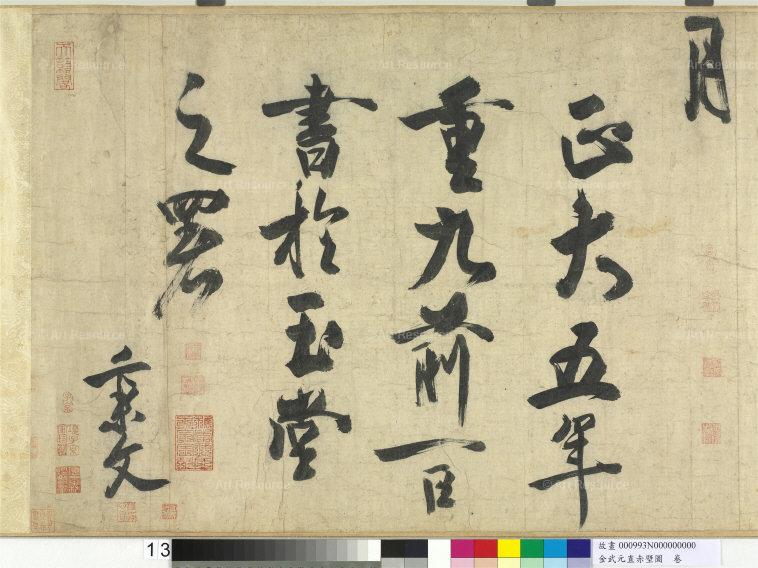 月
正大五年
重九前一日
書於玉堂
之署
秉文
13
故畫 000993N000000000
金武元直赤壁圖 卷
© Art Resource